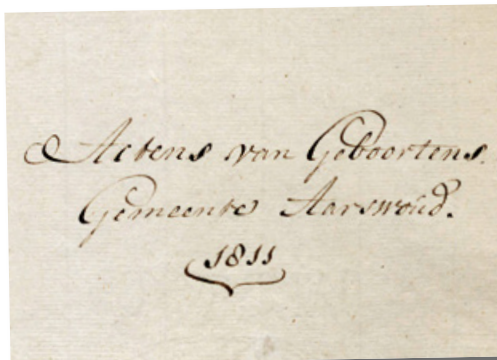 Actens van Geboortens.
Gemeente Aarswoud.
1811